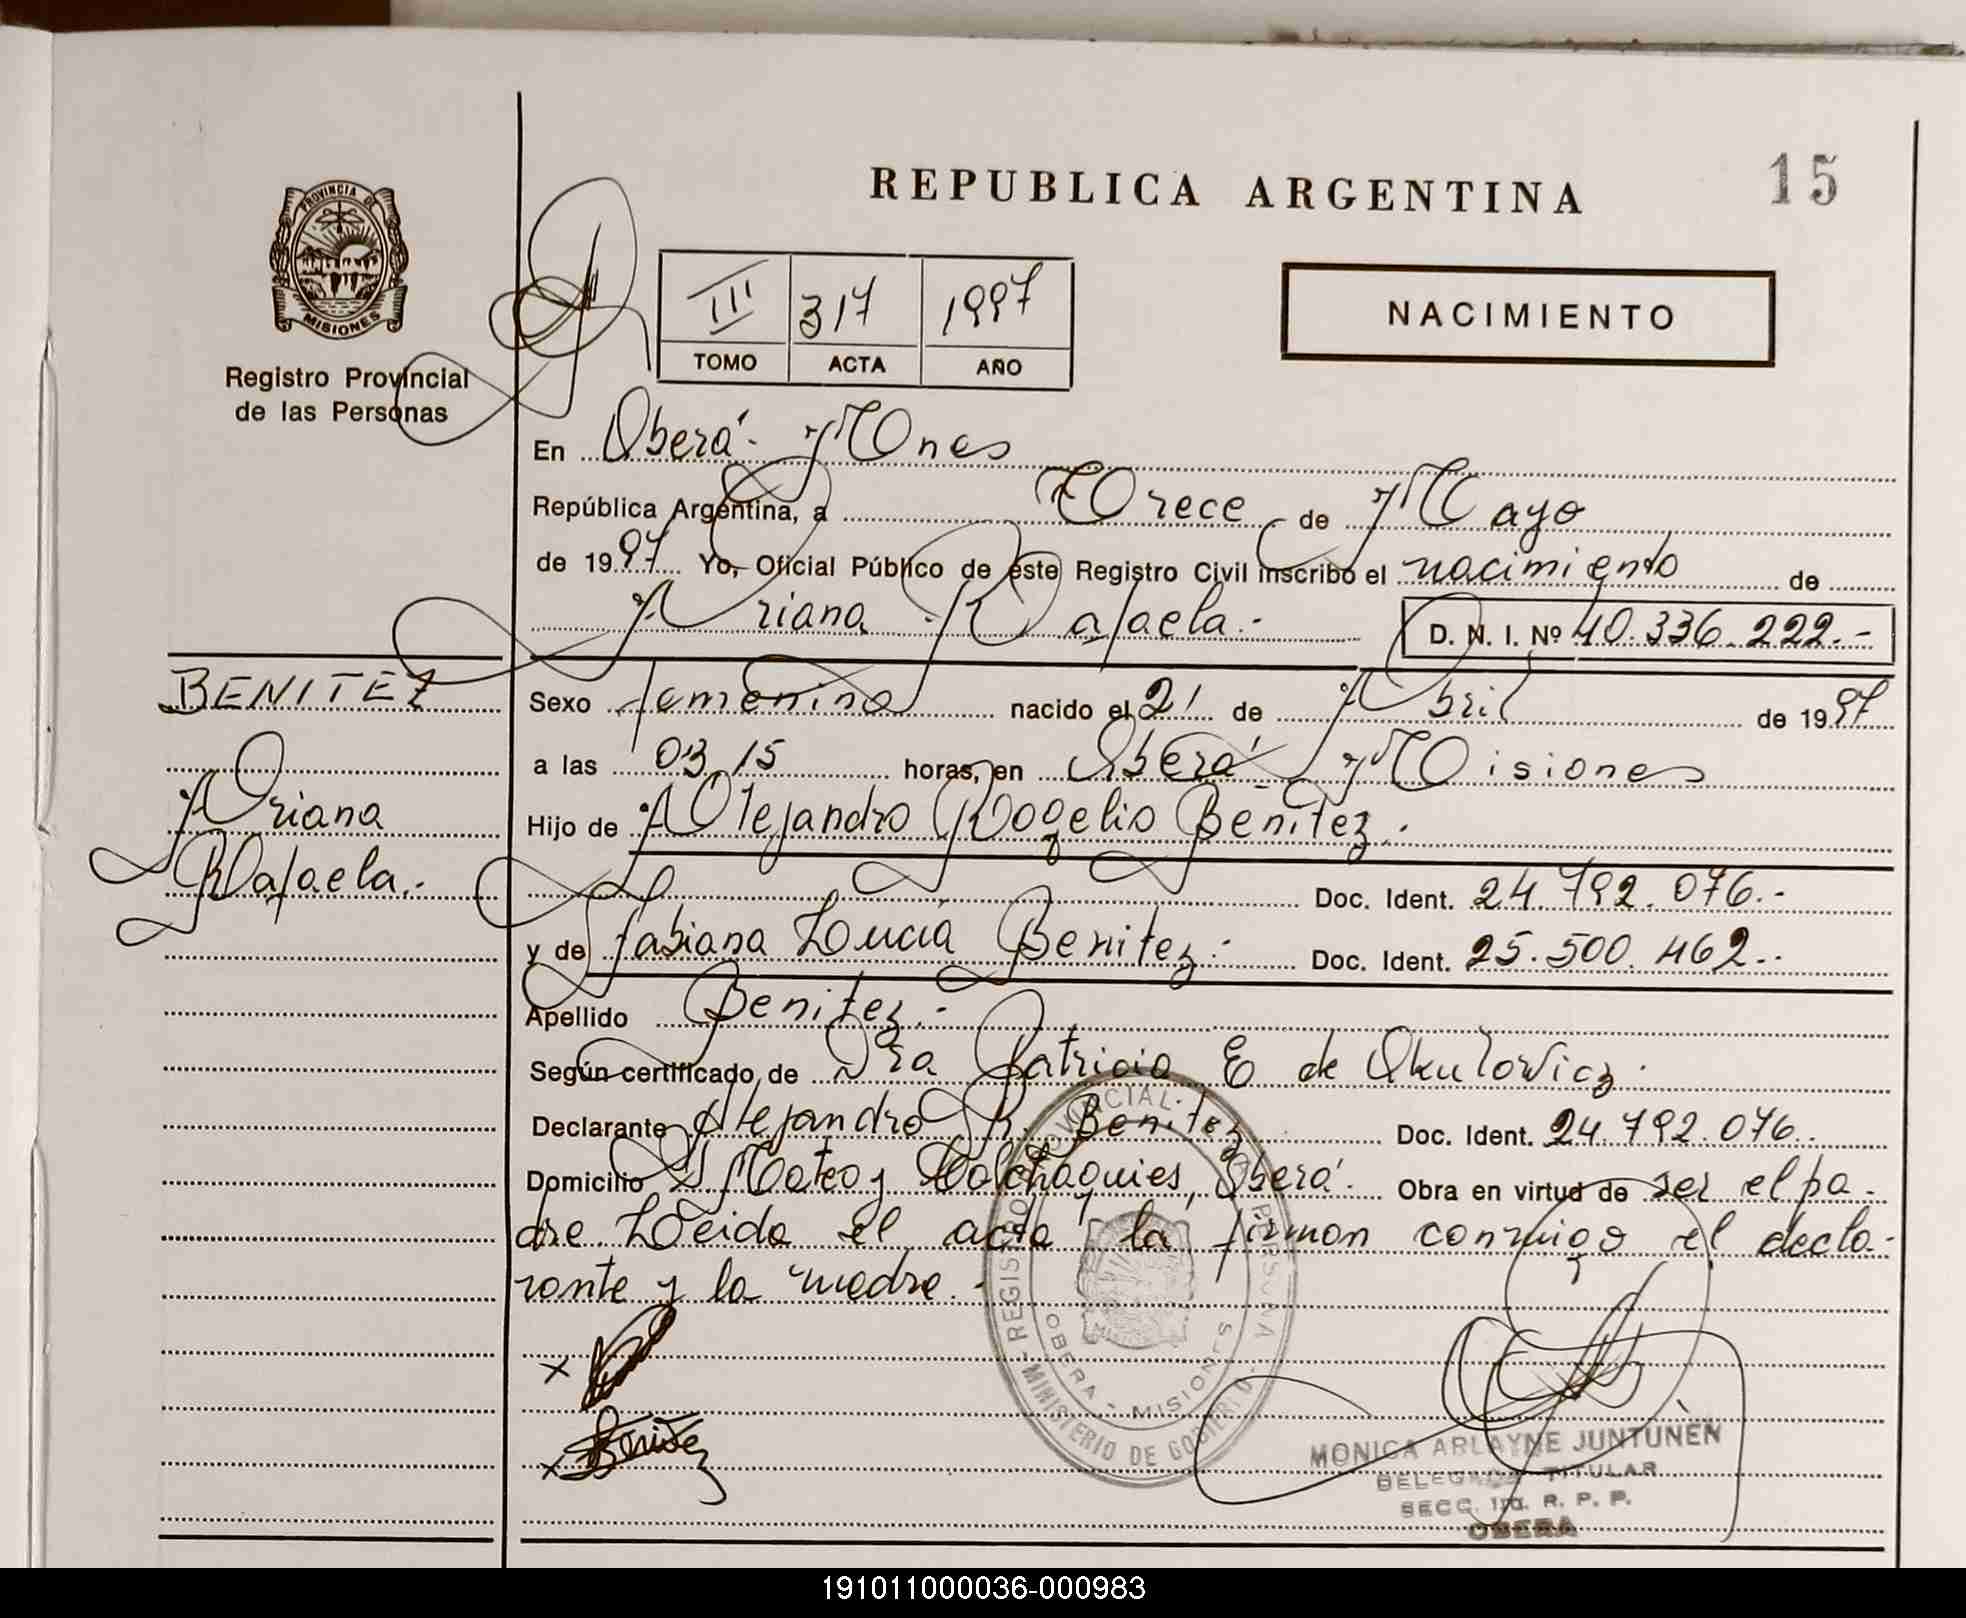 REPUBLICA ARGENTINA
15
PROVINCIA DE
MISIONES
Registro Provincial
de las Personas
III 317 1997
TOMO ACTA AÑO
NACIMIENTO
En Oberá- Mnes
República Argentina, a Trece de Mayo
de 1997 Yo, Oficial Público de este Registro Civil inscribo el nacimiento de
Ariana Rafaela.-
D. N. I. Nº 40.336.222.-
BENITEZ
Ariana
Rafaela.-
Sexo femenino nacido el 21 de Abril de 1997
a las 03 15 horas, en Oberá Misiones
Hijo de Alejandro Rogelio Benitez.
Doc. Ident. 24.792.076.-
y de Fabiana Lucia Benitez.- Doc. Ident. 25.500.462.-
Apellido Benitez.-
Según certificado de Dra Patricia E de Okulovicz.
Declarante Alejandro R. Benitez Doc. Ident. 24.792.076.
Domicilio S. Mateo y Calchaquies, Oberá. Obra en virtud de ser el pa-
dre Leida el acta la firman conmigo el decla-
rante y la madre.-
x
x Benitez
REGISTRO PROVINCIAL
MINISTERIO DE GOBIERNO
OBERA - MISIONES
MONICA ARLAYNE JUNTUNEN
DELEGADA TITULAR
SECC. R. P. P.
OBERA
191011000036-000983